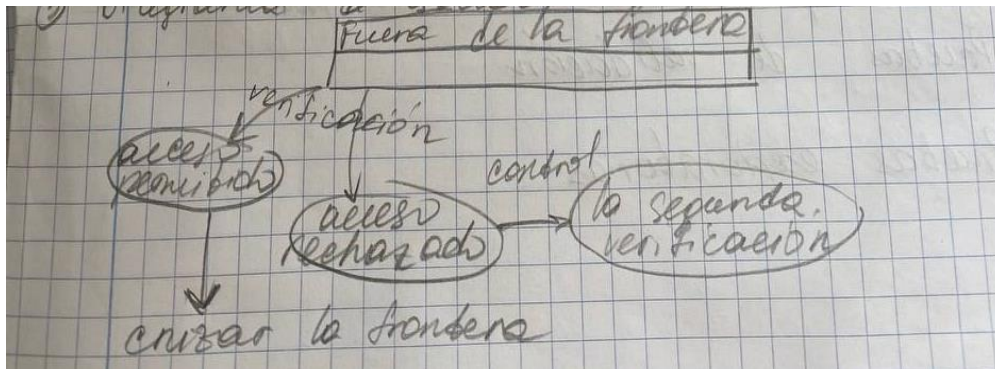 Fuera de la frontera
verificación
acceso
permitido
control
acceso
rechazado
la segunda.
verificación
cruzar la frontera